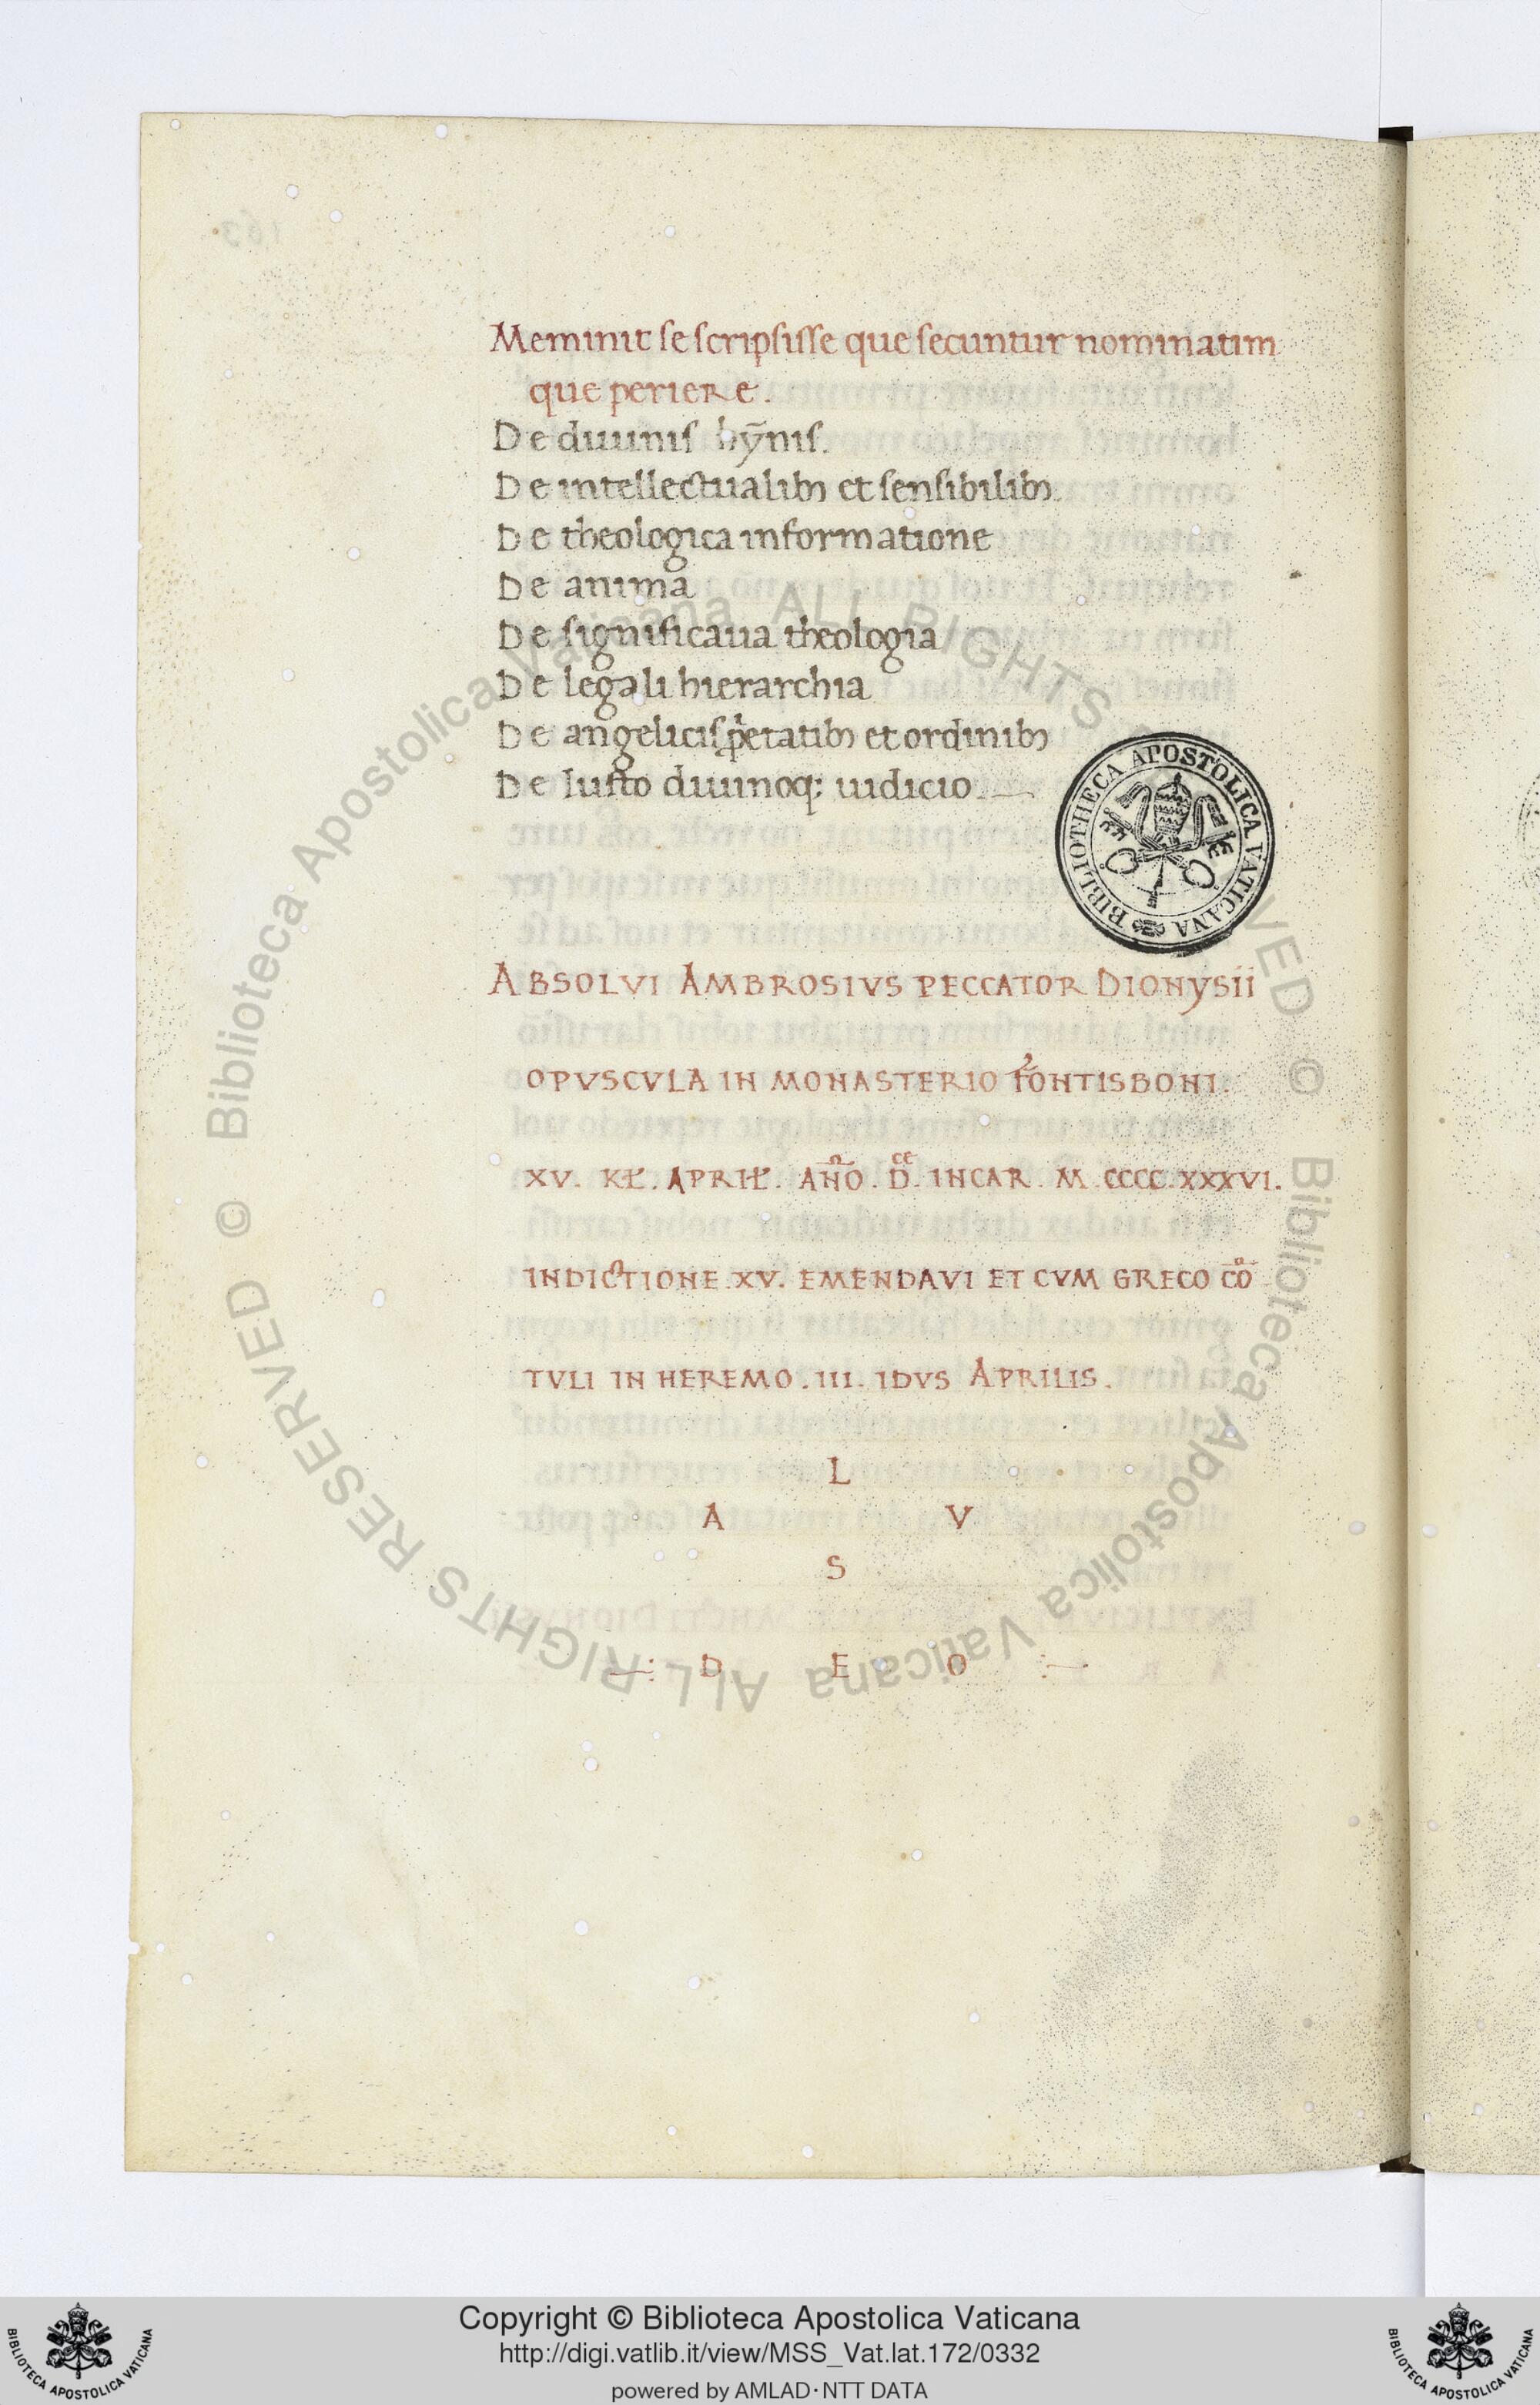 Meminit se scripsisse que secuntur nominatim
que periere.
De diuinis hȳnis.
De intellectualibꝫ et sensibilibꝫ.
De theologica informatione
De anima
De significaua theologia
De legali hierarchia
De angelicis ꝓp̄etatibꝫ et ordinibꝫ
De Iusto diuinoqꝫ iudicio.
ABSOLVI AMBROSIVS PECCATOR DIONYSII
OPVSCVLA IN MONASTERIO FONTISBONI.
XV. KŁ. APRIŁ. AÑO. D. INCAR. M.CCCC.XXXVI.
INDICTIONE.XV. EMENDAVI ET CVM GRECO CŌ
TVLI IN HEREMO. III. IDVS APRILIS.
L
A V
S
D E O
BIBLIOTHECA APOSTOLICA VATICANA
© Biblioteca Apostolica Vaticana ALL RIGHTS RESERVED © Biblioteca Apostolica Vaticana ALL RIGHTS RESERVED
Copyright © Biblioteca Apostolica Vaticana
http://digi.vatlib.it/view/MSS_Vat.lat.172/0332
powered by AMLAD·NTT DATA
BIBLIOTECA APOSTOLICA VATICANA
BIBLIOTECA APOSTOLICA VATICANA